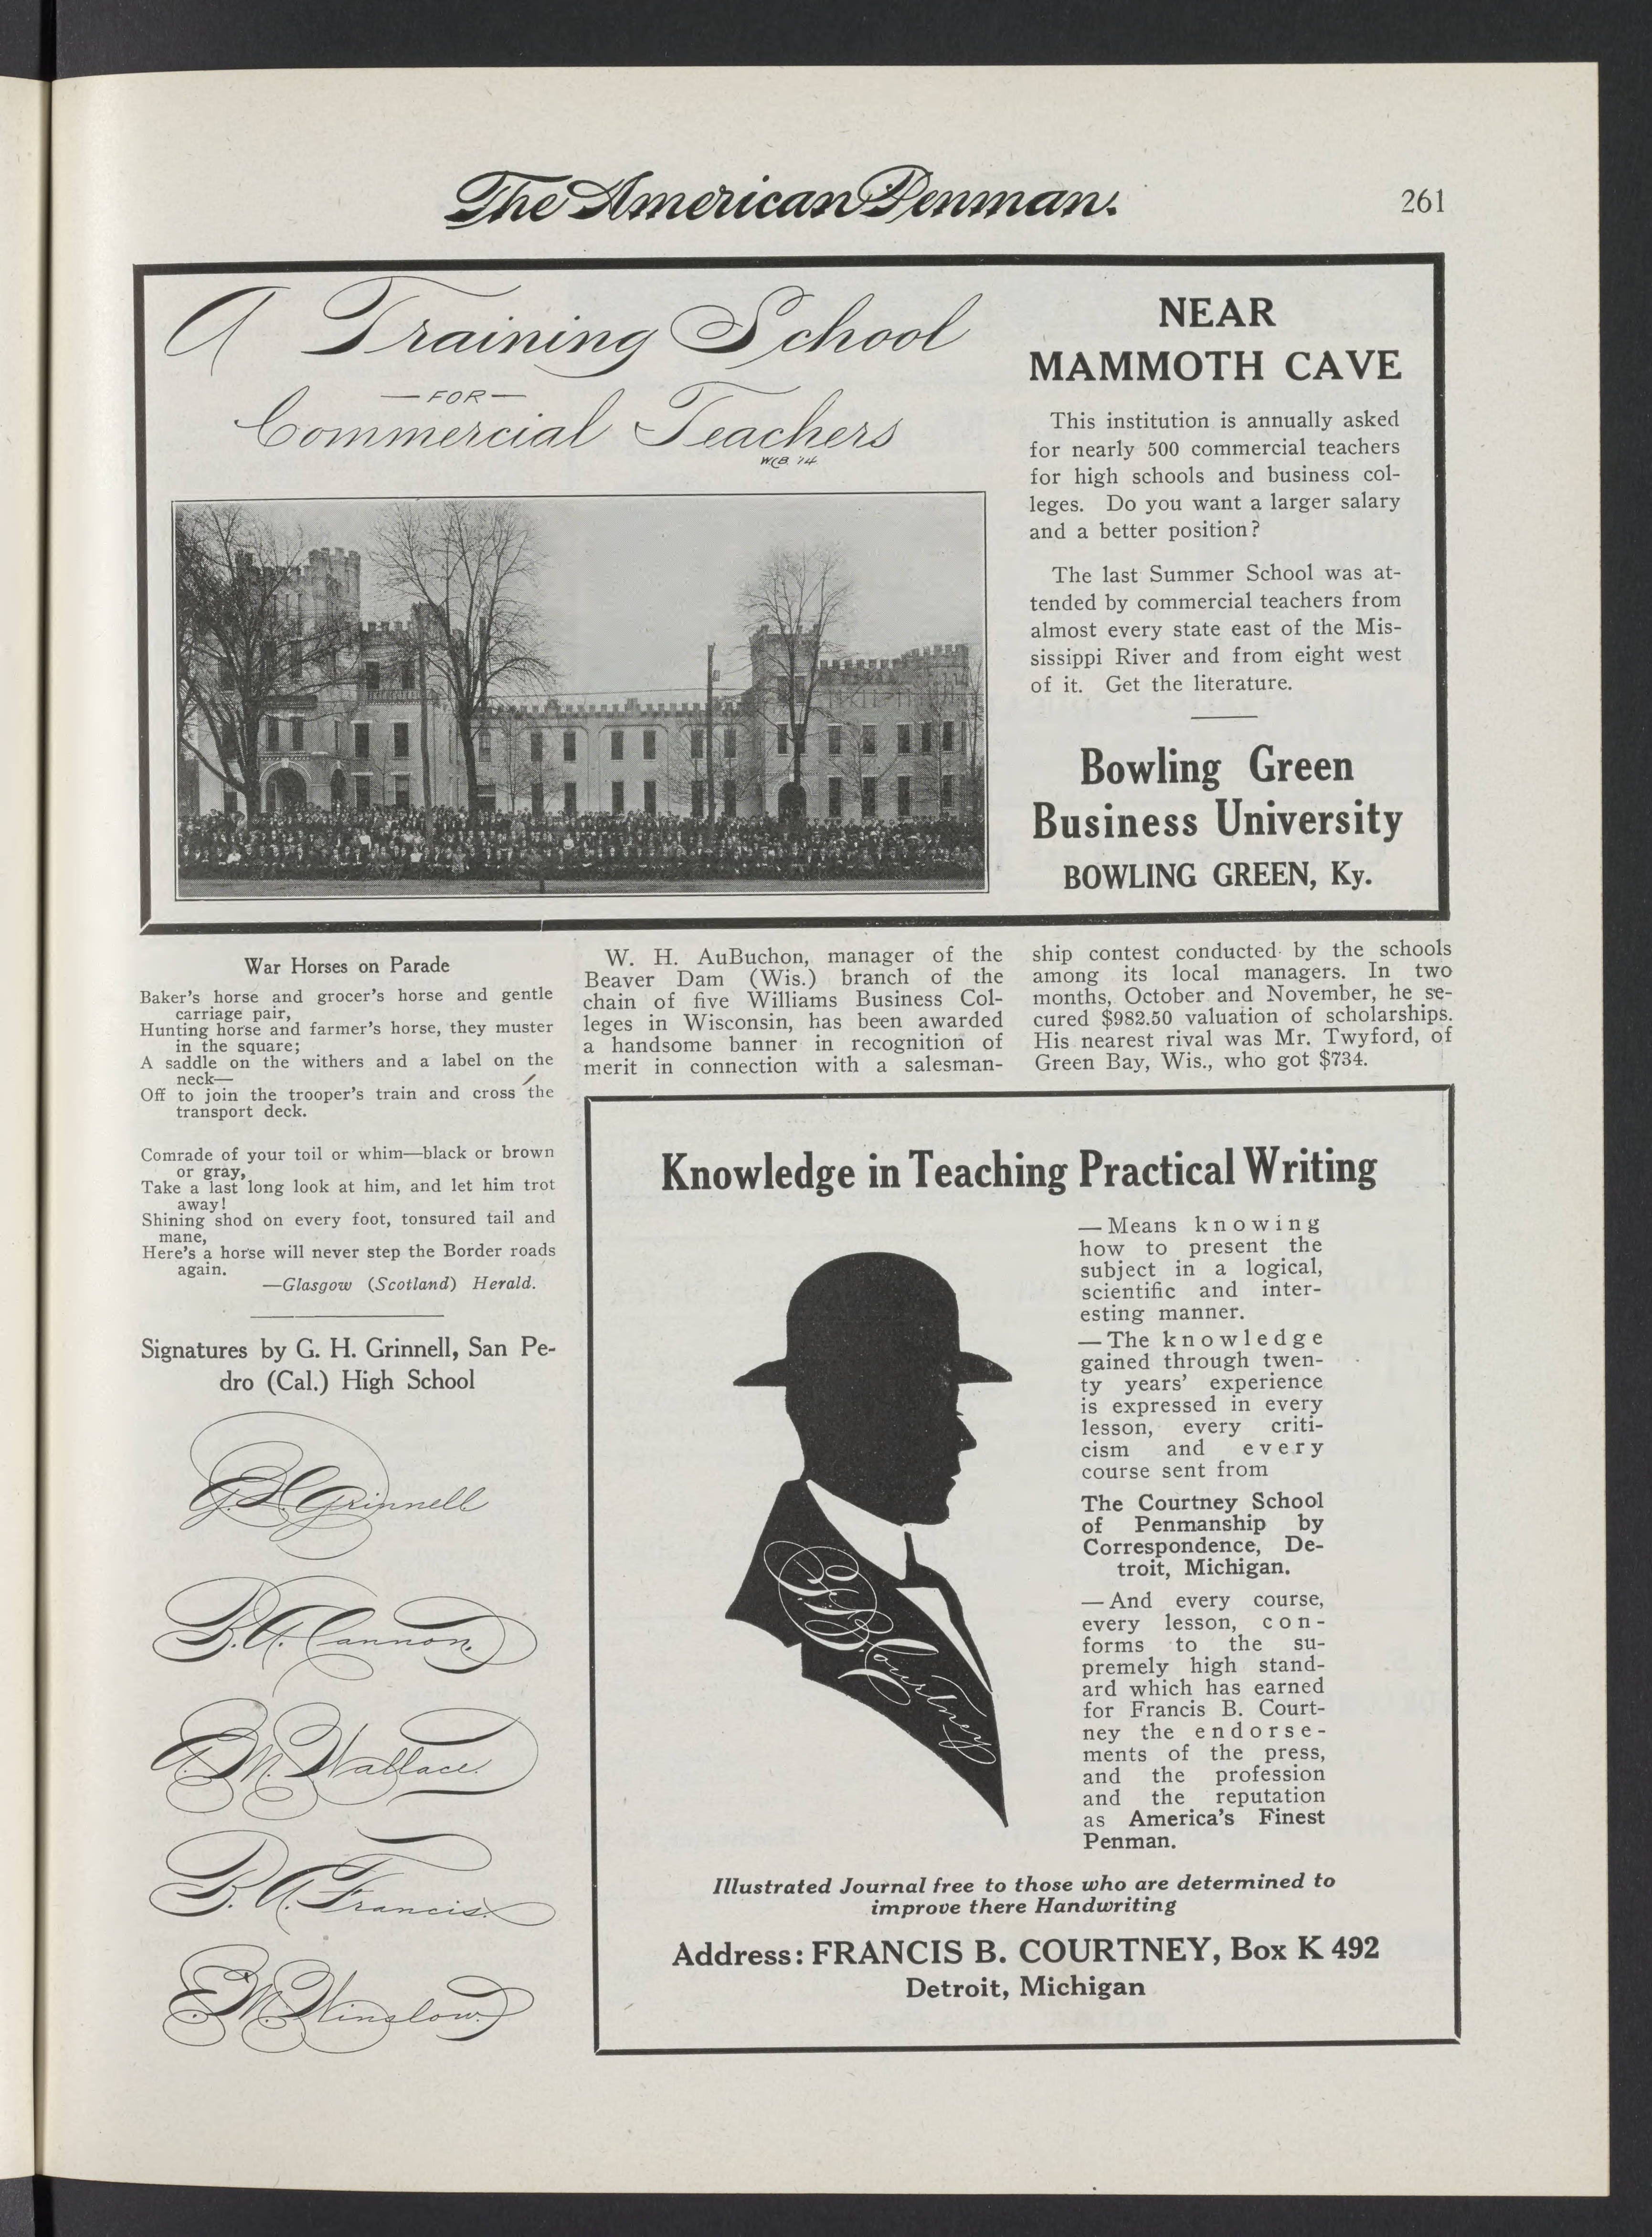 The American Penman.
261
A Training School
— FOR —
Commercial Teachers
WCB '14
NEAR
MAMMOTH CAVE
This institution is annually asked
for nearly 500 commercial teachers
for high schools and business col-
leges. Do you want a larger salary
and a better position?
The last Summer School was at-
tended by commercial teachers from
almost every state east of the Mis-
sissippi River and from eight west
of it. Get the literature.
Bowling Green
Business University
BOWLING GREEN, Ky.
War Horses on Parade
Baker's horse and grocer's horse and gentle
carriage pair,
Hunting horse and farmer's horse, they muster
in the square;
A saddle on the withers and a label on the
neck—
Off to join the trooper's train and cross the
transport deck.
Comrade of your toil or whim—black or brown
or gray,
Take a last long look at him, and let him trot
away!
Shining shod on every foot, tonsured tail and
mane,
Here's a horse will never step the Border roads
again.
—Glasgow (Scotland) Herald.
Signatures by G. H. Grinnell, San Pe-
dro (Cal.) High School
G.H. Grinnell
B.A. Cannon.
A.M. Wallace.
B.A. Francis.
E.M. Winslow.
W. H. AuBuchon, manager of the
Beaver Dam (Wis.) branch of the
chain of five Williams Business Col-
leges in Wisconsin, has been awarded
a handsome banner in recognition of
merit in connection with a salesman-
ship contest conducted by the schools
among its local managers. In two
months, October and November, he se-
cured $982.50 valuation of scholarships.
His nearest rival was Mr. Twyford, of
Green Bay, Wis., who got $734.
Knowledge in Teaching Practical Writing
— Means knowing
how to present the
subject in a logical,
scientific and inter-
esting manner.
— The knowledge
gained through twen-
ty years' experience
is expressed in every
lesson, every criti-
cism and every
course sent from
The Courtney School
of Penmanship by
Correspondence, De-
troit, Michigan.
— And every course,
every lesson, con-
forms to the su-
premely high stand-
ard which has earned
for Francis B. Court-
ney the endorse-
ments of the press,
and the profession
and the reputation
as America's Finest
Penman.
F.B. Courtney
Illustrated Journal free to those who are determined to
improve there Handwriting
Address: FRANCIS B. COURTNEY, Box K 492
Detroit, Michigan